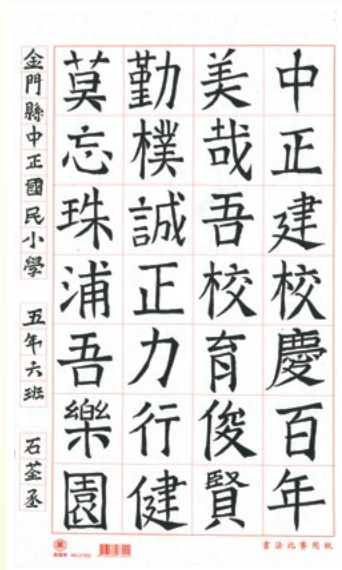 中正建校慶百年
美哉吾校育俊賢
勤樸誠正力行健
莫忘珠浦吾樂園
金門縣中正國民小學 五年六班 石荃丞
書法比賽用紙